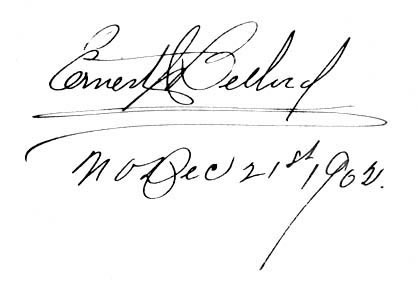 Ernest
N O Dec 21st 1902.